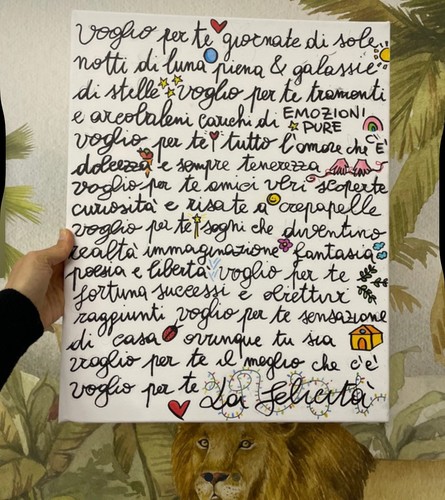 voglio per te giornate di sole
notti di luna piena & galassie
di stelle voglio per te tramonti
e arcobaleni carichi di EMOZIONI
PURE
voglio per te tutto l'amore che c'È
dolcezza e sempre tenerezza
voglio per te amici veri scoperte
curiosità e risate a crepapelle
voglio per te sogni che diventino
realtà immaginazione fantasia
poesia e libertà voglio per te
fortuna successi e obiettivi
raggiunti voglio per te sensazione
di casa ovunque tu sia
voglio per te il meglio che c'è
voglio per te La felicità